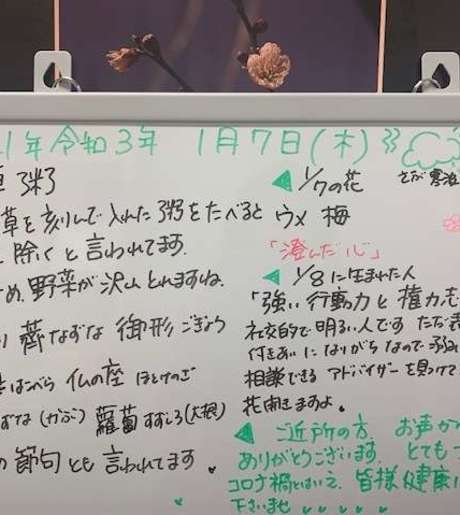 1年 令和3年 1月7日(木)
粥
草を刻んで入れた粥をたべると
除くと言われてます.
め.野菜が沢山とれますね.
り 薺 なずな 御形 ごぎょう
はこべら 仏の座 ほとけのざ
ずな(かぶ) 蘿蔔 すずしろ(大根)
の節句とも言われてます。
◀ 1/7の花
ウメ 梅
「澄んだ心」
◀ 1/8に生まれた人
「強い行動力と権力志
社交的で明るい人です ただ表
付きあいになりがちなので
相談できるアドバイザーを見つけて
花開きますよ.
◀ ご近所の方 お声か
ありがとうございます. とても
コロナ禍とはいえ.皆様健康に
下さいませ